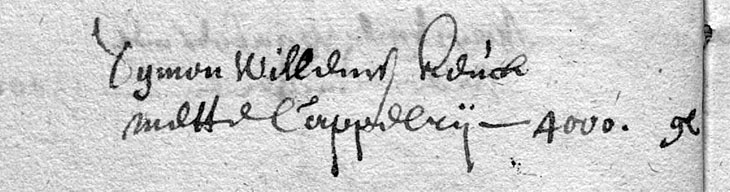 Symon Willems Keuck
mette Capperij — 4000. gl